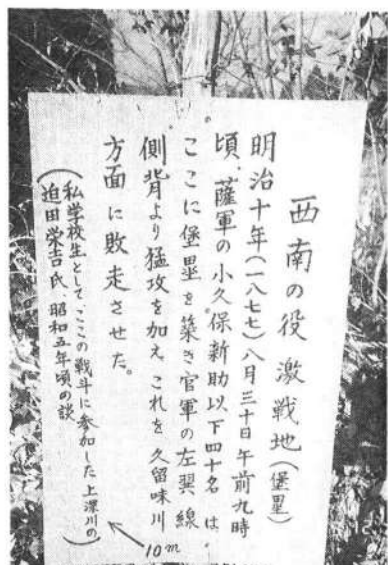 西南の役激戦地(堡塁)
明治十年(一八七七)八月三十日午前九時
頃、薩軍の小久保新助以下四十名は、
ここに堡塁を築き官軍の左翼線
側背より猛攻を加え、これを久留味川
方面に敗走させた。
(私学校生として、ここの戦斗に参加した上深川の
迫田栄吉氏、昭和五年頃の談)
10m